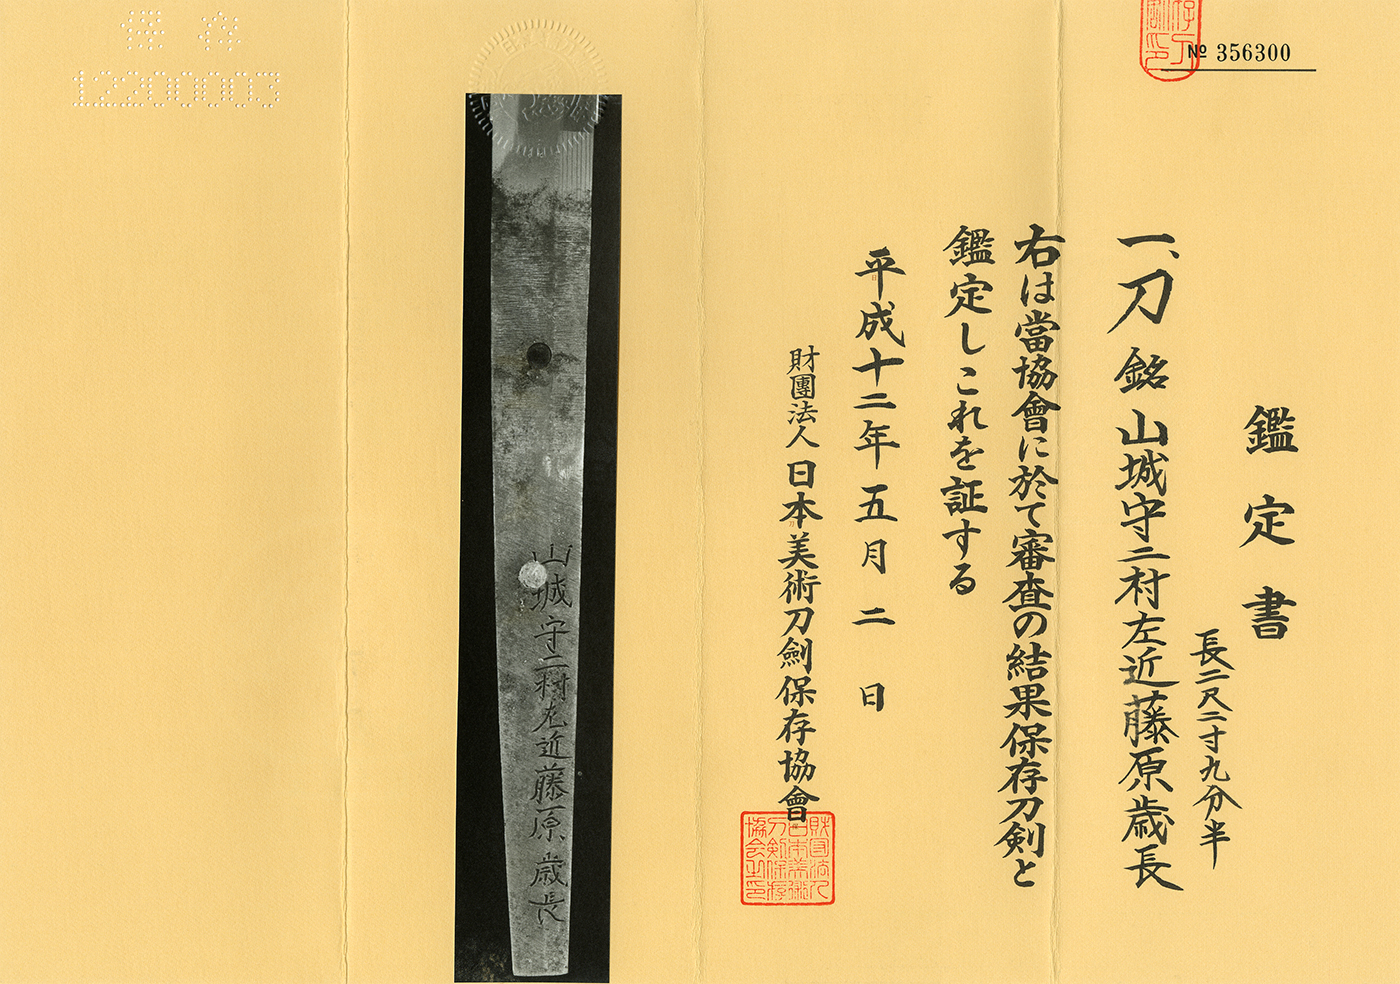 № 356300
鑑定書
一、刀 銘 山城守二村左近藤原歳長
長二尺二寸九分半
右は當協會に於て審査の結果保存刀剣と
鑑定しこれを証する
平成十二年五月二日
財團法人日本美術刀劍保存協會
財団法人
日本美術
刀剣保存
協会之印
山城守二村左近藤原歳長
保存
12200003